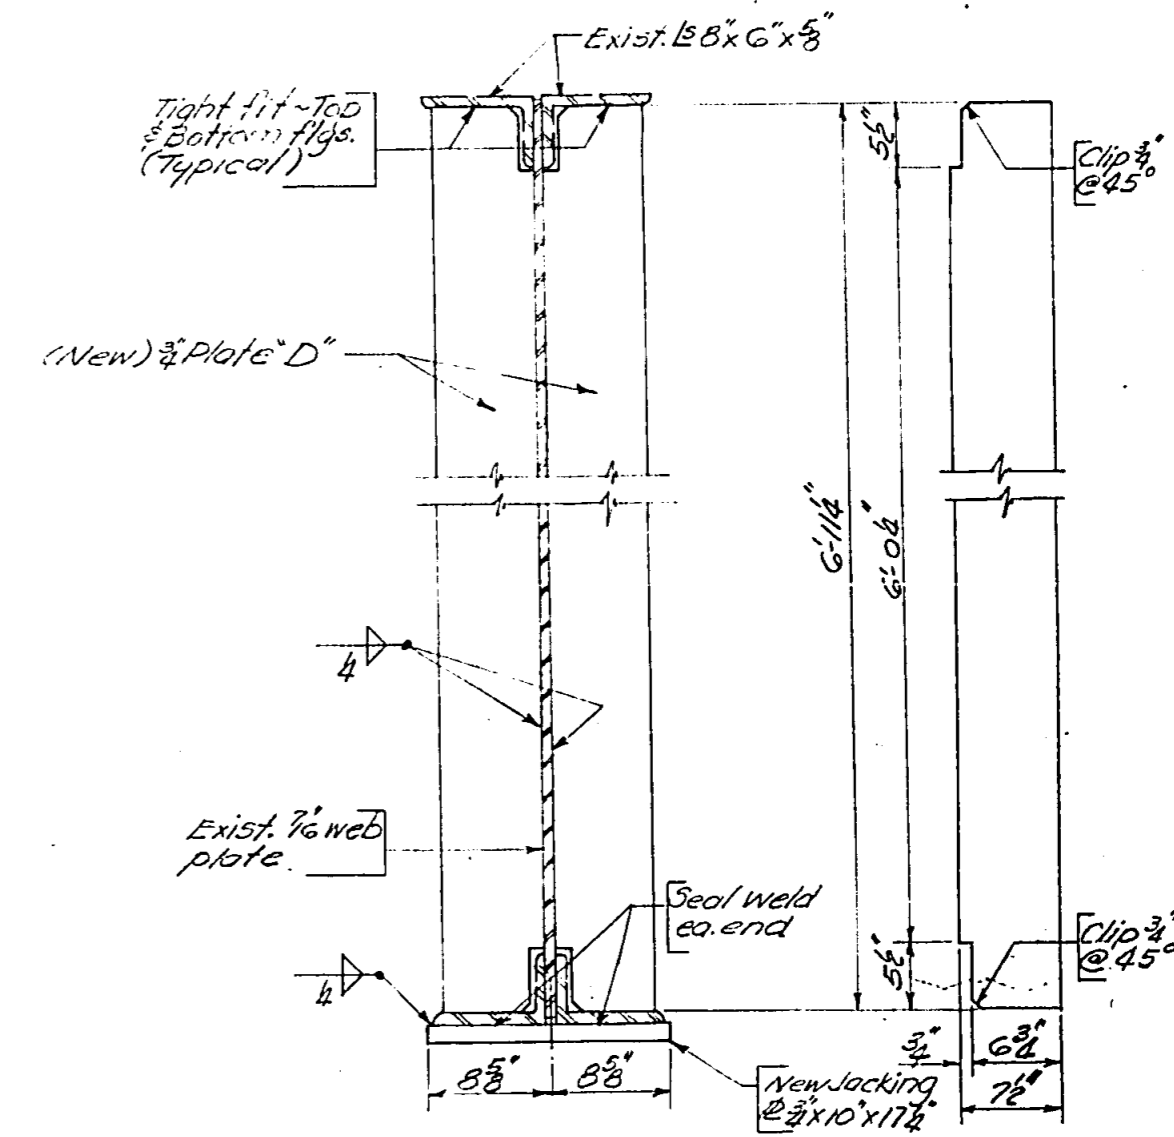 Exist. Ls 8" x 6" x 5/8"
Tight fit ~ Top
& Bottom flgs.
(Typical)
5 1/2"
Clip 3/4"
@ 45°
(New) 3/4" Plate "D"
6'-11 1/4"
6'-0 1/4"
4
Exist. 7/16" web
plate.
Seal weld
ea. end
Clip 3/4"
@ 45°
5 1/2"
4
3/4"
6 3/4"
7 1/2"
8 5/8"
8 5/8"
New Jacking
PL 3/4" x 10" x 17 1/4"